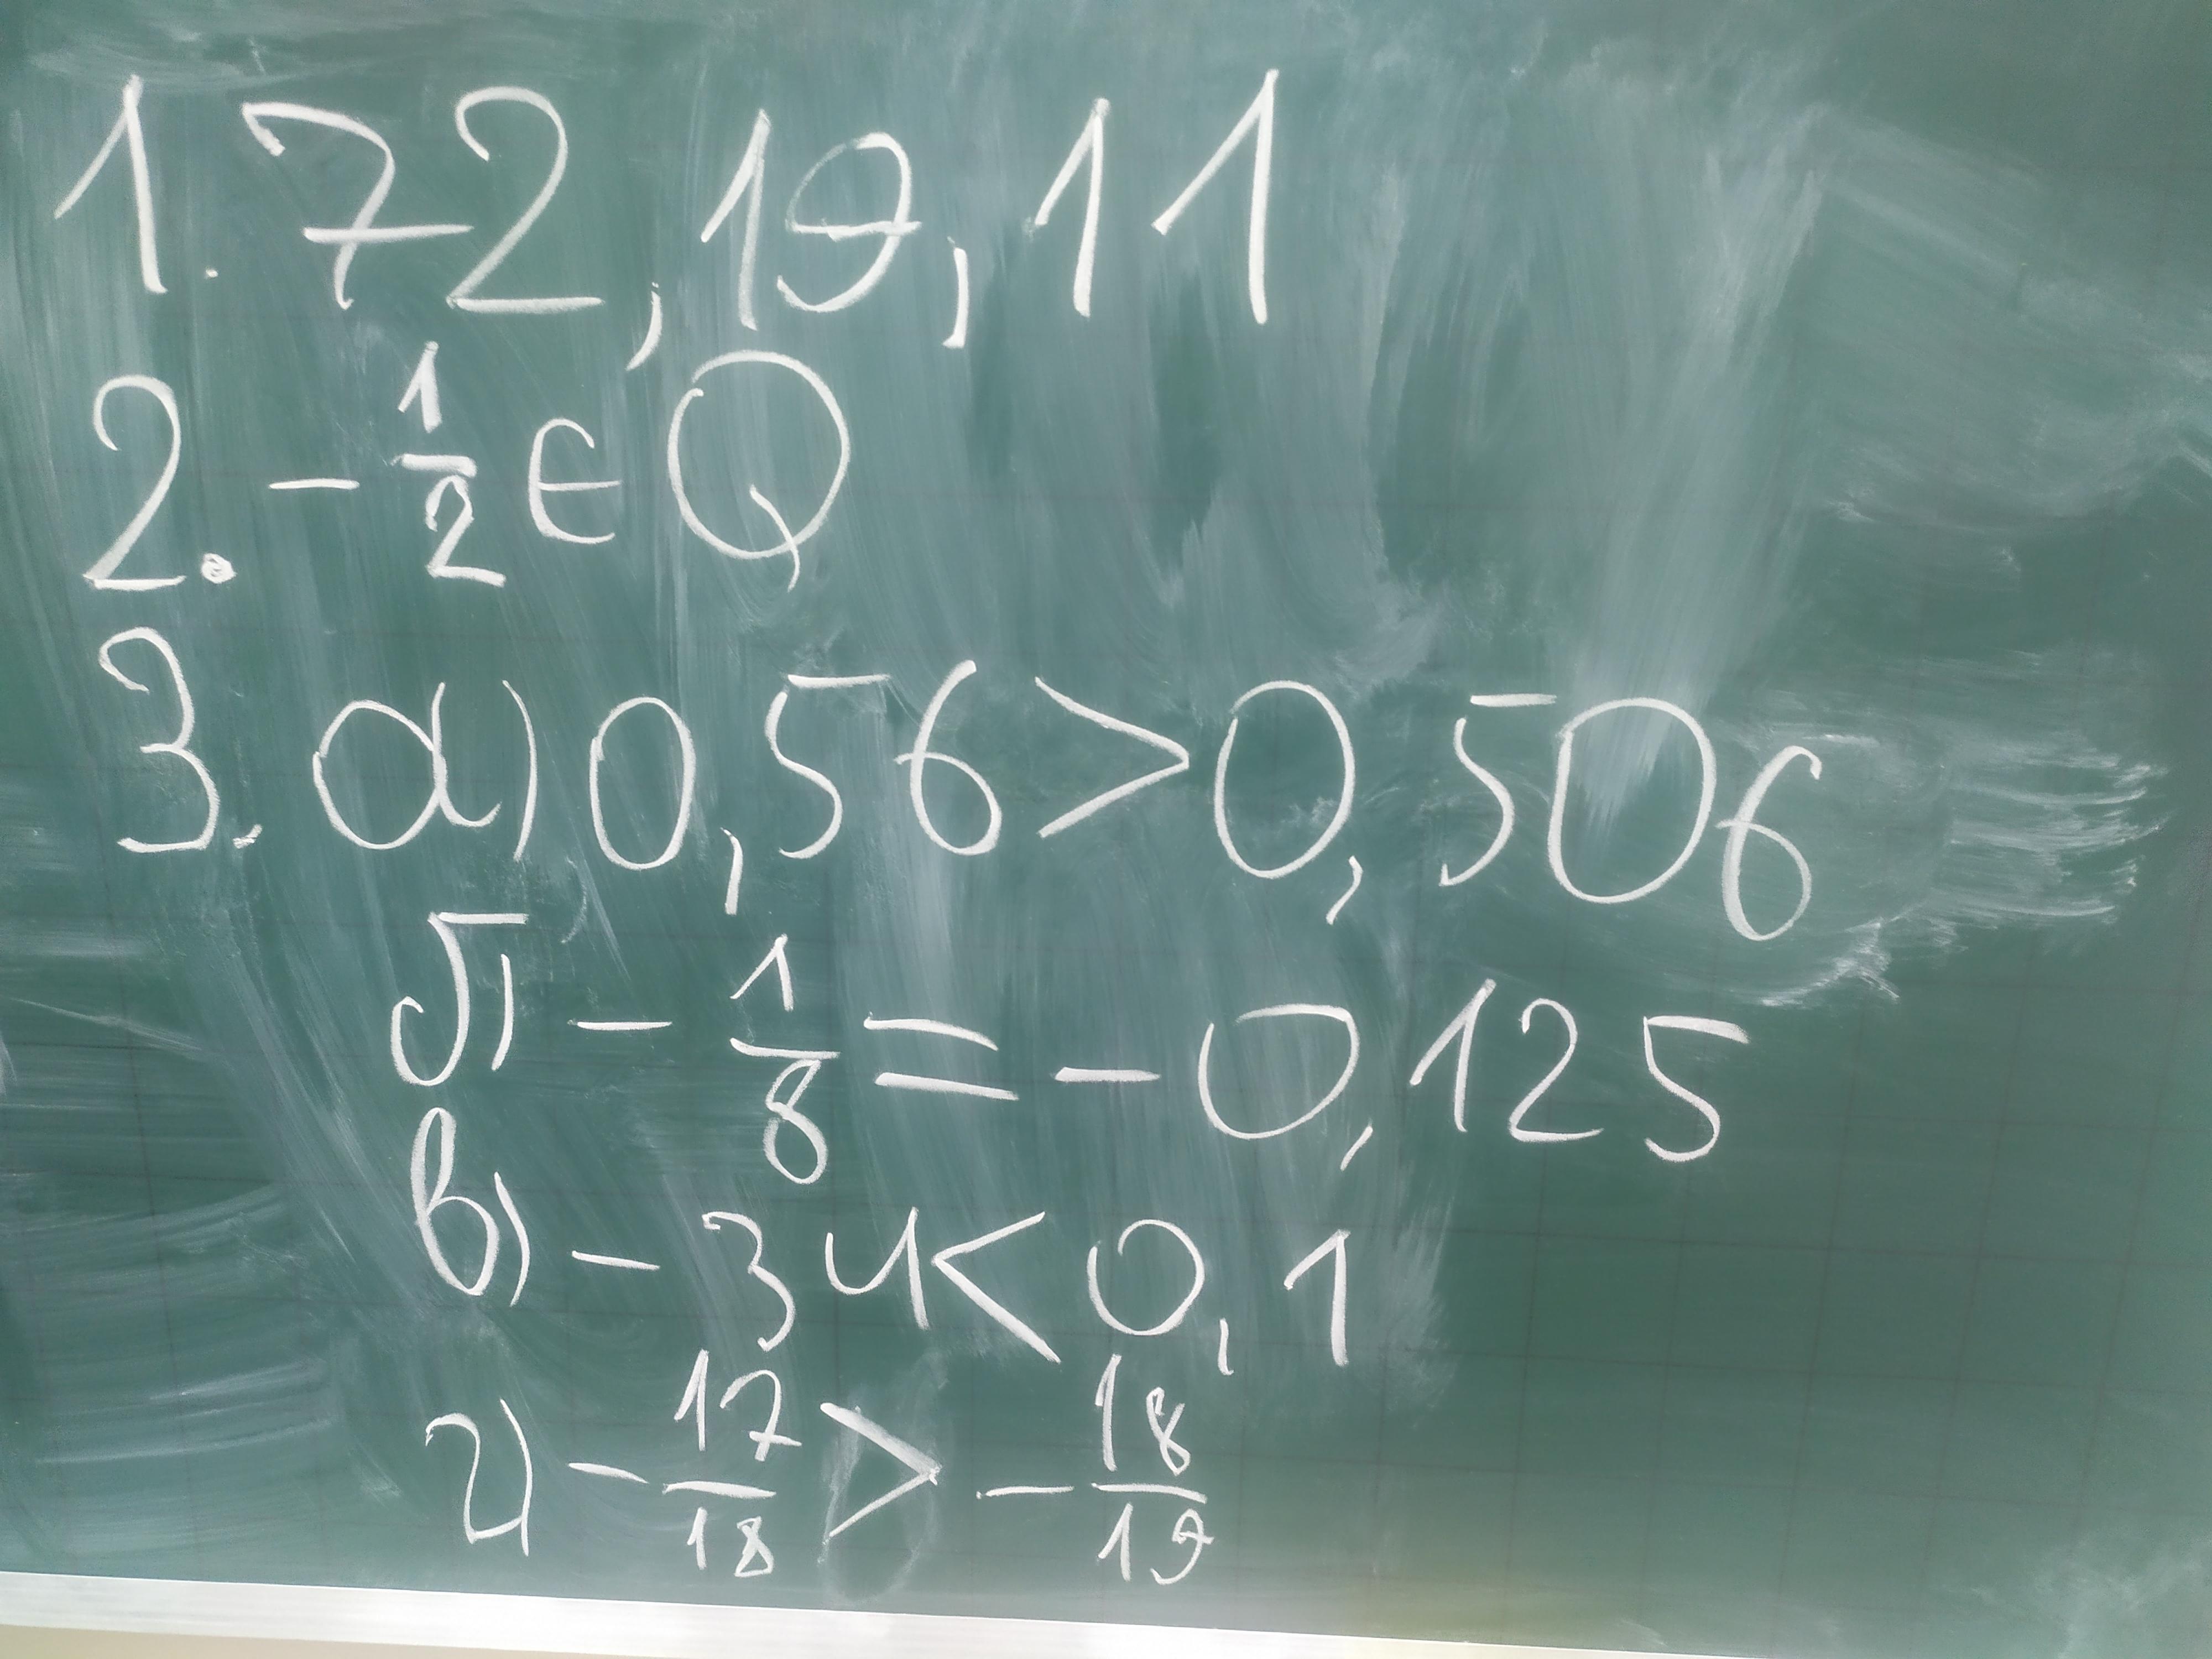 1. 72, 19, 11
2. - 1/2 ∈ Q
3. а) 0,56 > 0,506
б) - 1/8 = - 0,125
в) - 34 < 0,1
г) - 17/18 > - 18/19